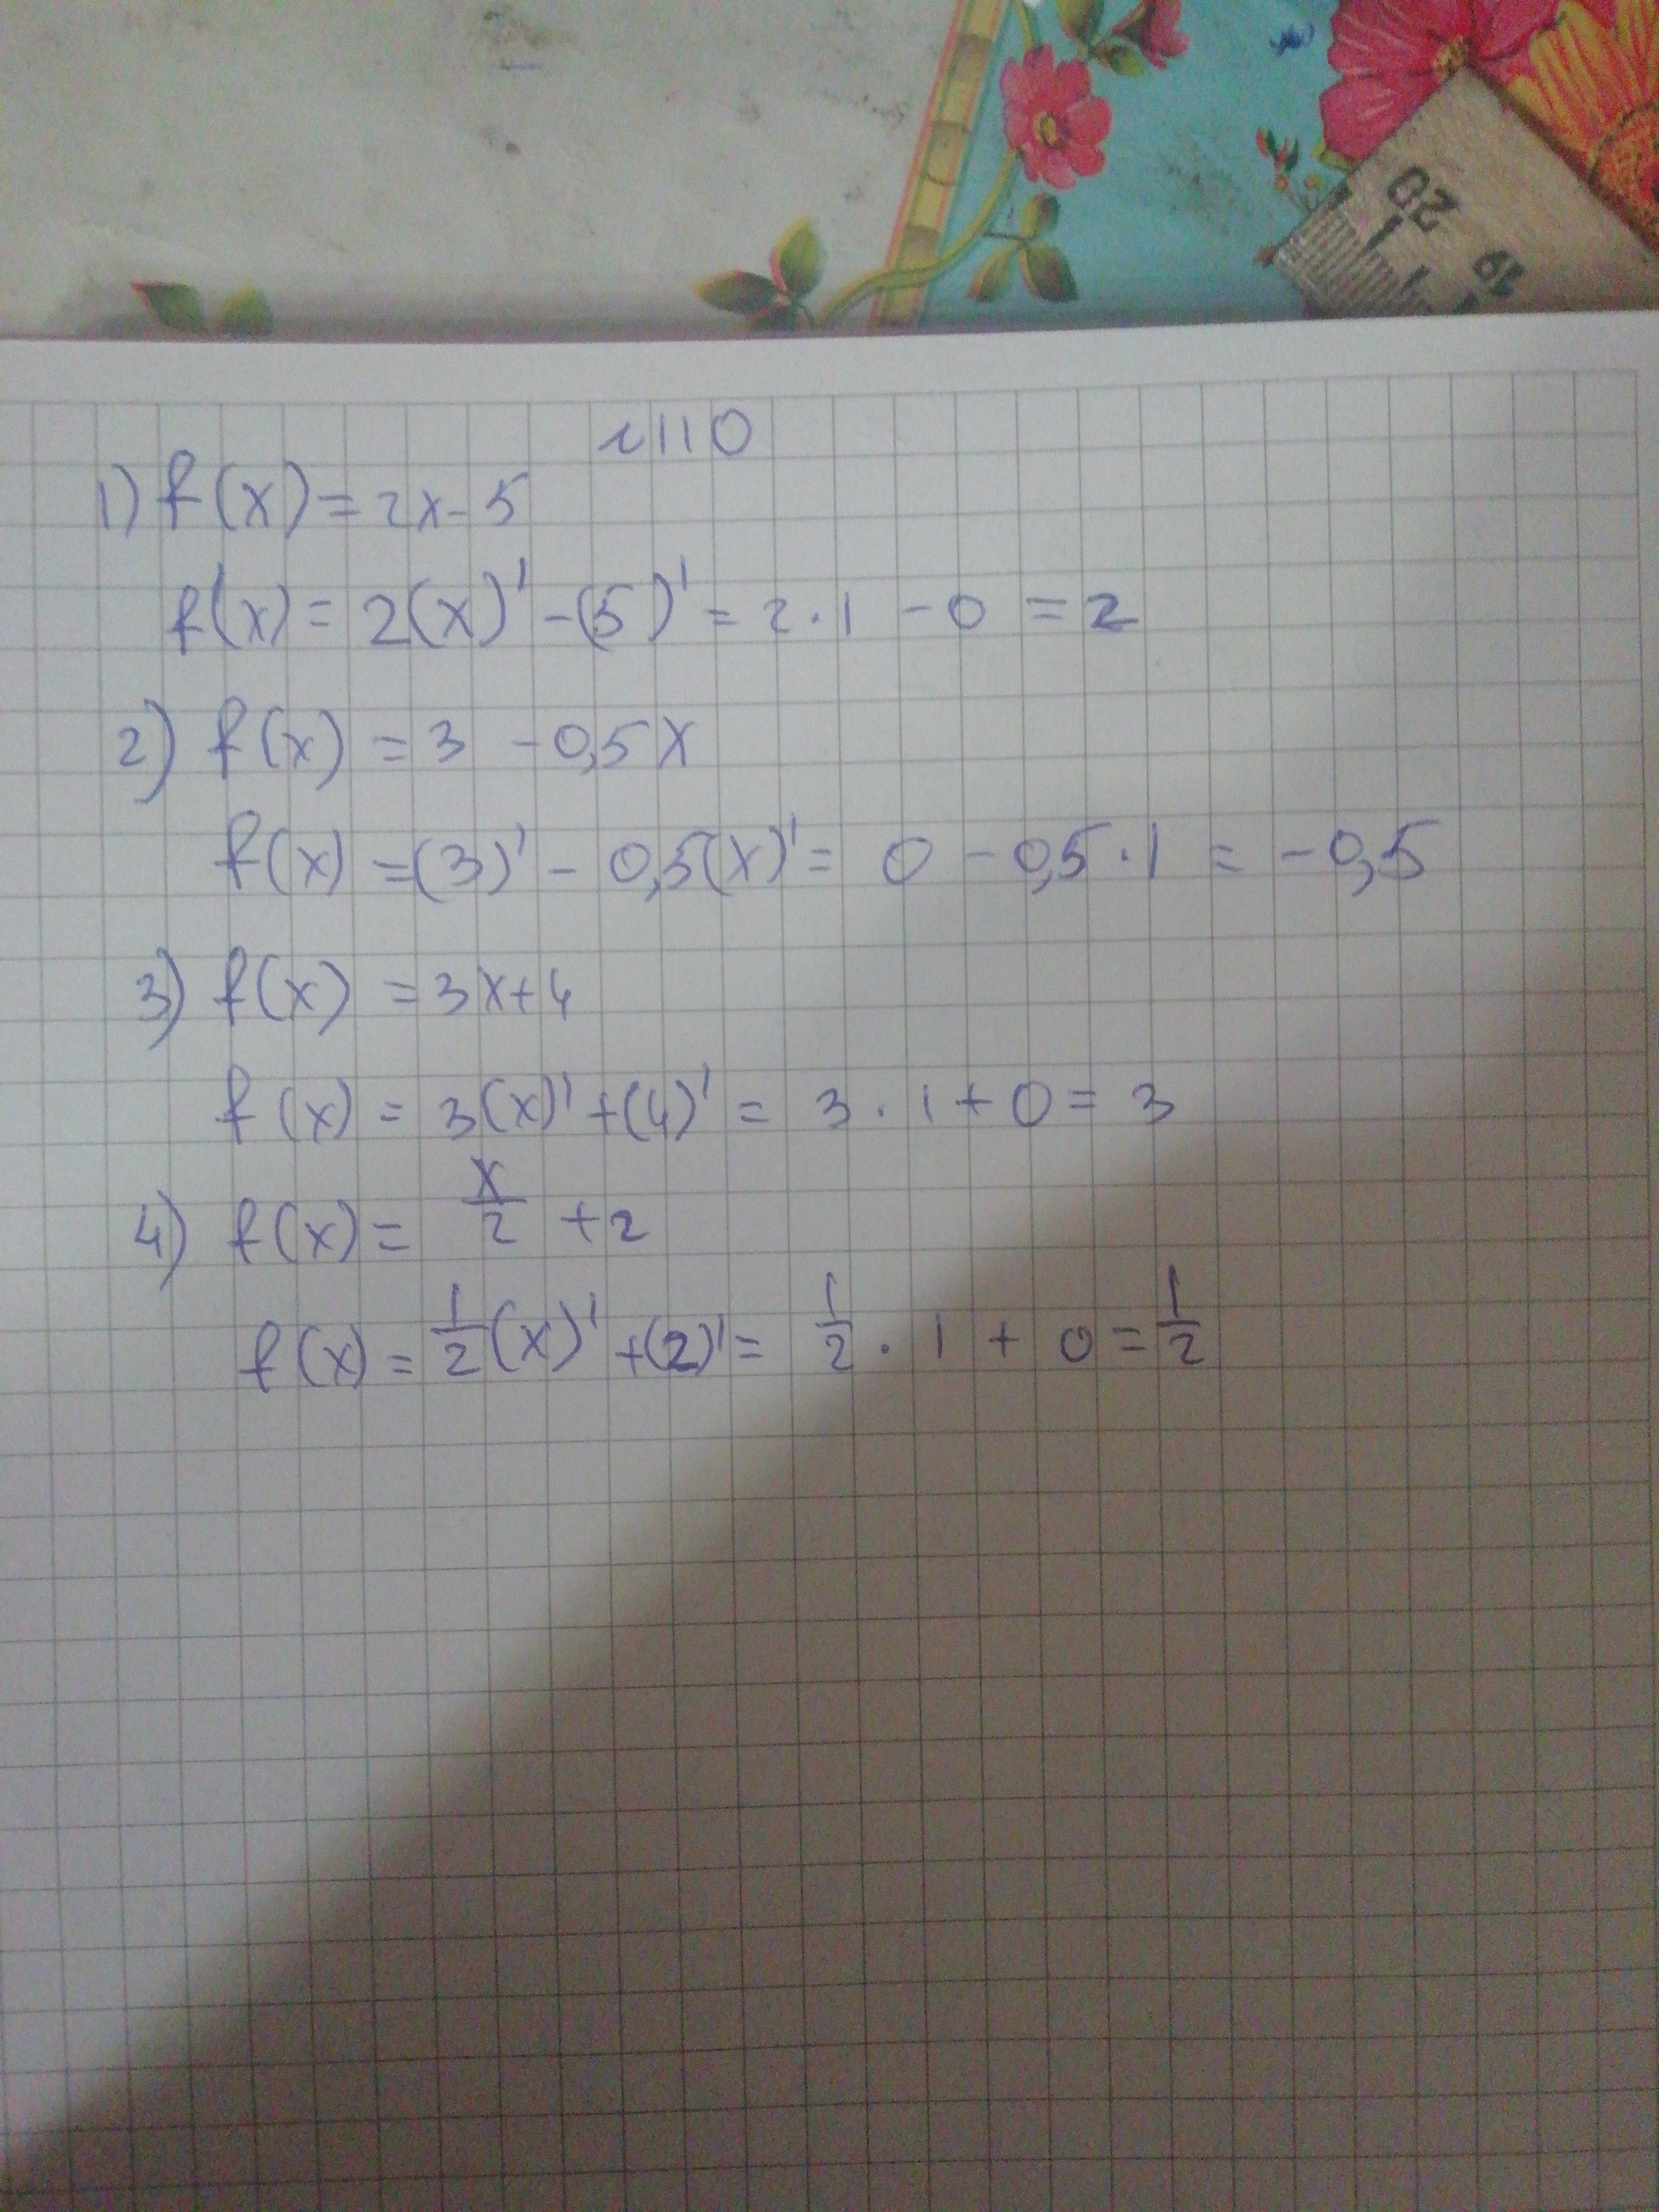 20
19
г110
1) f(x) = 2x - 5
f'(x) = 2(x)' - (5)' = 2 · 1 - 0 = 2
2) f(x) = 3 - 0,5x
f(x) = (3)' - 0,5(x)' = 0 - 0,5 · 1 = -0,5
3) f(x) = 3x + 4
f(x) = 3(x)' + (4)' = 3 · 1 + 0 = 3
4) f(x) = x/2 + 2
f(x) = 1/2 (x)' + (2)' = 1/2 · 1 + 0 = 1/2